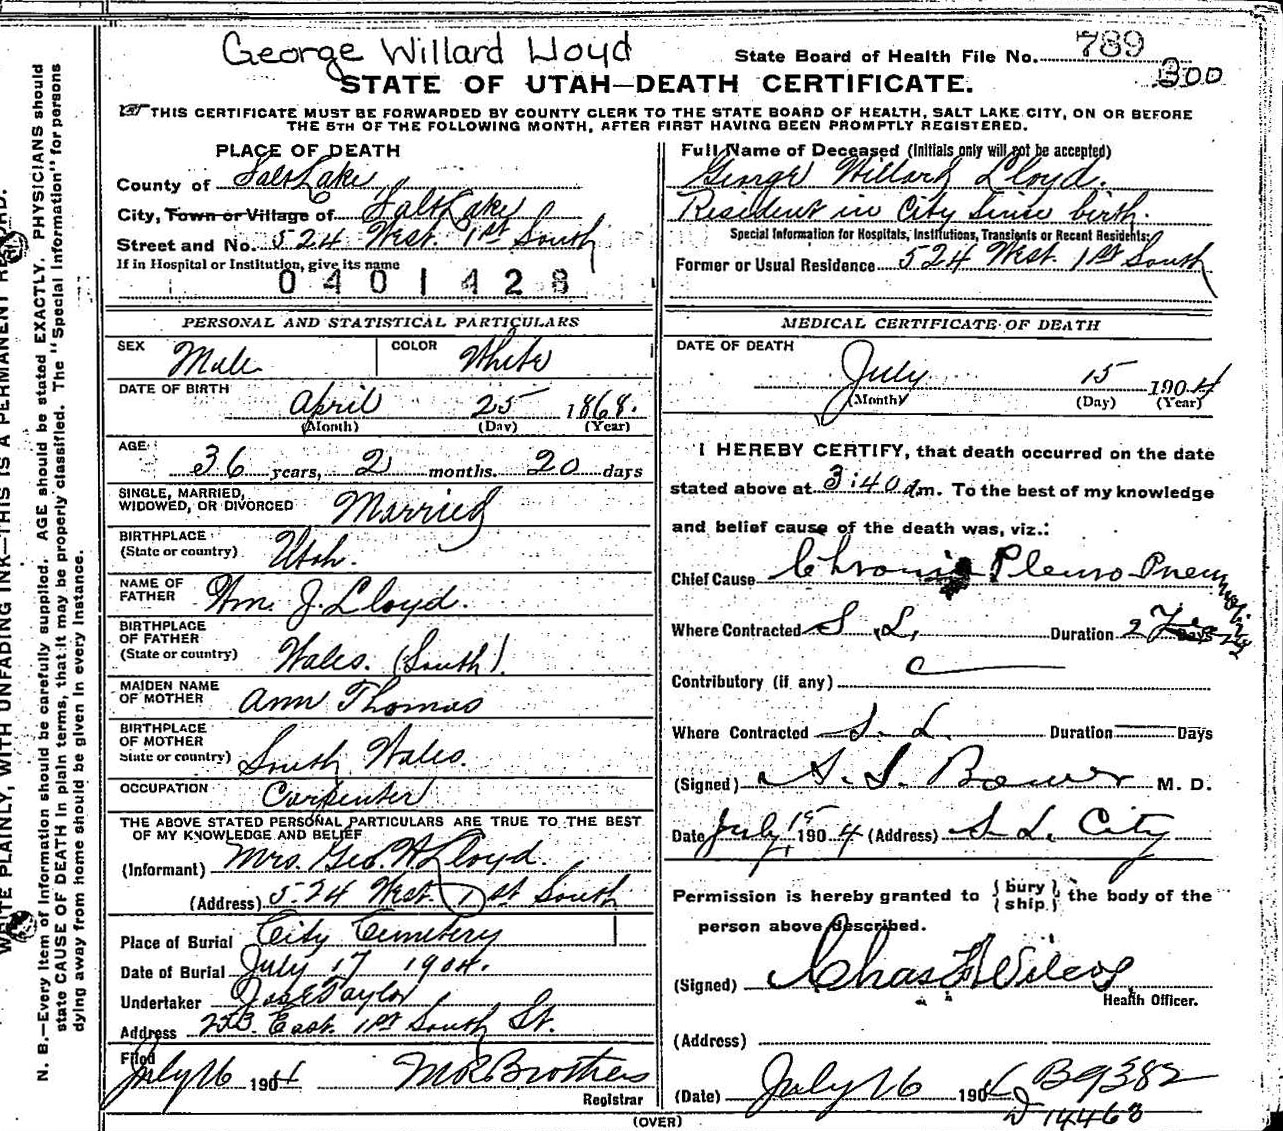 George Willard Lloyd
State Board of Health File No. 789
300
STATE OF UTAH—DEATH CERTIFICATE.
THIS CERTIFICATE MUST BE FORWARDED BY COUNTY CLERK TO THE STATE BOARD OF HEALTH, SALT LAKE CITY, ON OR BEFORE
THE 5TH OF THE FOLLOWING MONTH, AFTER FIRST HAVING BEEN PROMPTLY REGISTERED.
PLACE OF DEATH
County of Salt Lake
City, Town or Village of Salt Lake
Street and No. 524 West. 1st South
If in Hospital or Institution, give its name
0401428
Full Name of Deceased (Initials only will not be accepted)
George Willard Lloyd.
Resident in City Since birth.
Special Information for Hospitals, Institutions, Transients or Recent Residents:
Former or Usual Residence 524 West. 1st South
PERSONAL AND STATISTICAL PARTICULARS
SEX Male COLOR White
DATE OF BIRTH
April 25 1868.
(Month) (Day) (Year)
AGE
36 years, 2 months. 20 days
SINGLE, MARRIED,
WIDOWED, OR DIVORCED Married
BIRTHPLACE
(State or country) Utah.
NAME OF
FATHER Wm. J. Lloyd.
BIRTHPLACE
OF FATHER
(State or country) Wales. (South).
MAIDEN NAME
OF MOTHER Ann Thomas
BIRTHPLACE
OF MOTHER
State or country) South Wales.
OCCUPATION Carpenter
THE ABOVE STATED PERSONAL PARTICULARS ARE TRUE TO THE BEST
OF MY KNOWLEDGE AND BELIEF
(Informant) Mrs. Geo. W. Lloyd.
(Address) 524 West. 1st South
Place of Burial City Cemetery
Date of Burial July 17 1904.
Undertaker Jos E Taylor
Address East. 1st South St.
Filed
July 16 1904 Brothers
Registrar
MEDICAL CERTIFICATE OF DEATH
DATE OF DEATH
July 15 1904
(Month) (Day) (Year)
I HEREBY CERTIFY, that death occurred on the date
stated above at 3:40 a.m. To the best of my knowledge
and belief cause of the death was, viz.:
Chief Cause Chronic Pleuro-Pneumonia
Where Contracted S. L. Duration 2 Days
Contributory (if any)
Where Contracted S. L. Duration Days
(Signed) M. D.
Date July 15 1904 (Address) S. L. City
Permission is hereby granted to (bury) (ship) the body of the
person above described.
(Signed) Chas Wilcox
Health Officer.
(Address)
(Date) July 16 1904 B9382
14468
(OVER)
WRITE PLAINLY, WITH UNFADING INK—THIS IS A PERMANENT RECORD.
N. B.—Every item of information should be carefully supplied. AGE should be stated EXACTLY. PHYSICIANS should
state CAUSE OF DEATH in plain terms, that it may be properly classified. The "Special Information" for persons
dying away from home should be given in every instance.